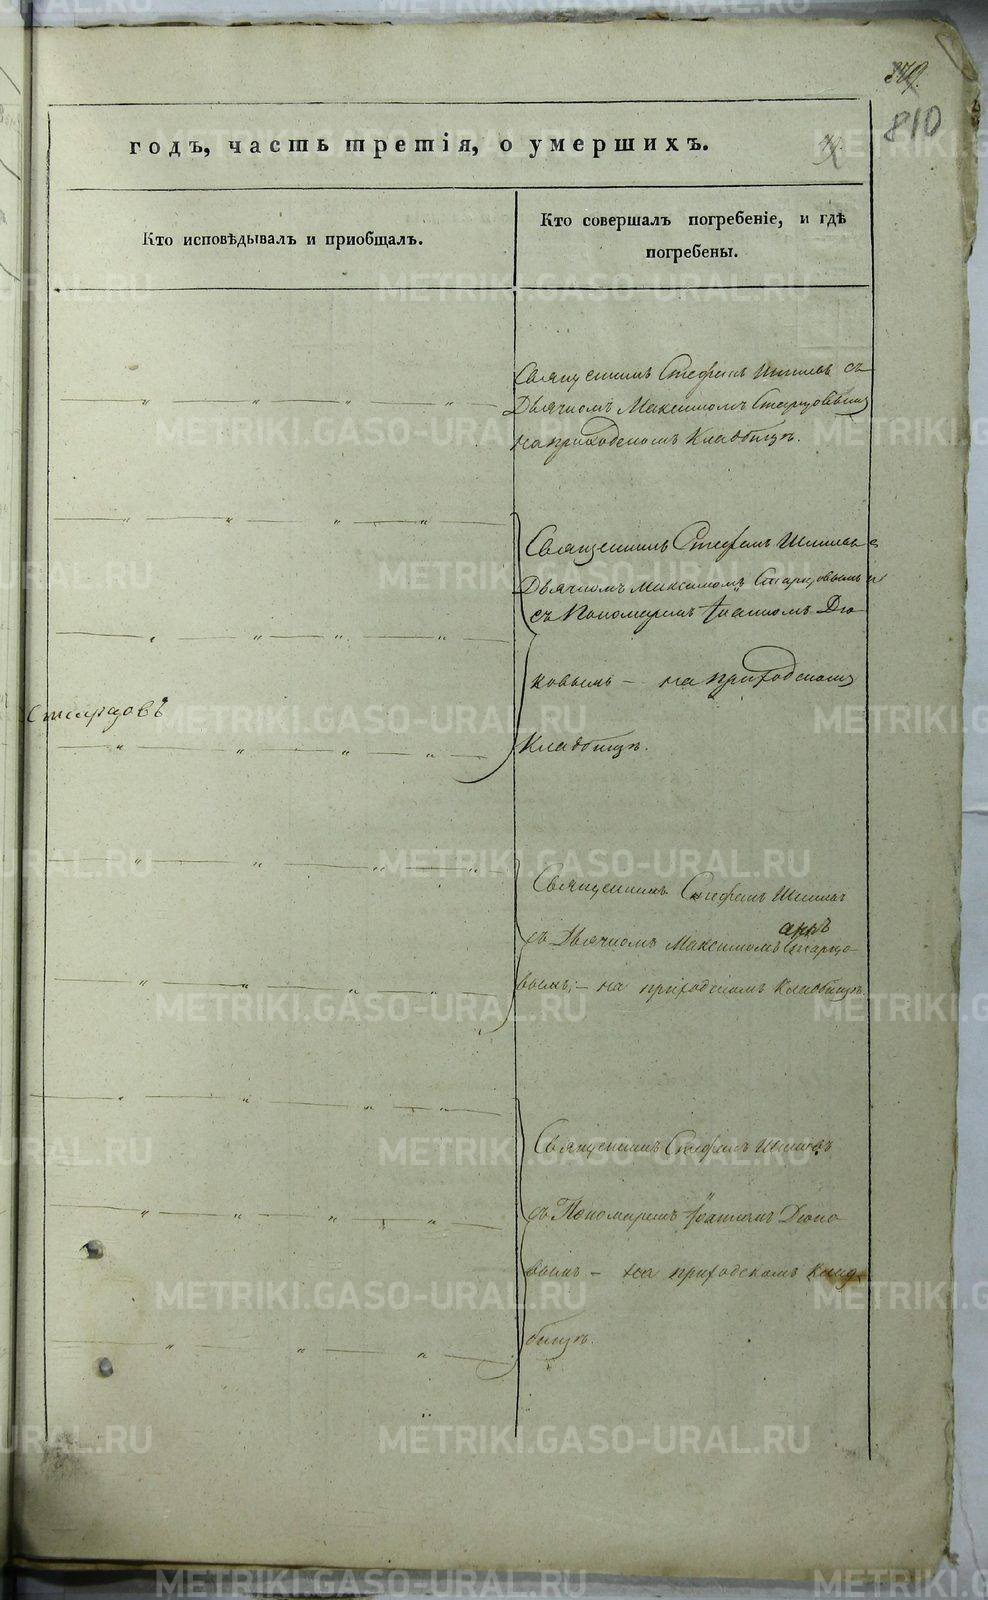 810
годъ, часть третія, о умершихъ.
Кто исповѣдывалъ и пріобщалъ.
Кто совершалъ погребеніе, и гдѣ
погребены.
Священникъ Стефанъ съ
Дьячкомъ Максимомъ Старцовымъ
на приходскомъ Кладбищѣ.
Священникъ Стефанъ съ
Дьячкомъ Максимомъ Старцовымъ и
съ Пономаремъ Іоанномъ Дю-
ковымъ – на приходскомъ
Старцовъ
Кладбищѣ.
Священникъ Стефанъ
съ Дьячкомъ Максимомъ Старцо-
вымъ, – на приходскомъ Кладбищѣ.
Священникъ Стефанъ
съ Пономаремъ Іоанномъ Дюко-
вымъ – на приходскомъ Клад-
бищѣ.
METRIKI.GASO-URAL.RU